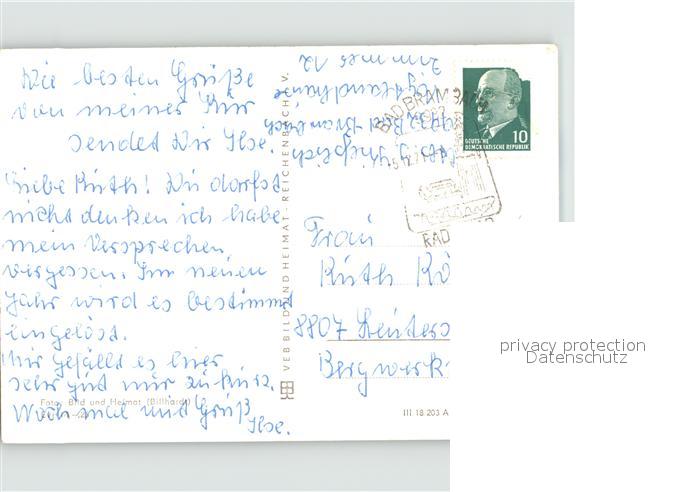 Die besten Grüße
von meiner Kur
sendet Dir Ilse.
Liebe Ruth! Du darfst
nicht denken ich habe
mein Versprechen
vergessen. Im neuen
Jahr wird es bestimmt
eingelöst.
Mir gefällt es hier
sehr gut nur zu kurz.
Nochmal und Gruß
Ilse.
Foto: Bild und Heimat (Billhardt)
VEB BILD UND HEIMAT · REICHENBACH I. V.
Zimmer 12
9932 Bad Brambach
BAD BRAMBACH
RAD
10
DEUTSCHE
DEMOKRATISCHE REPUBLIK
Frau
Ruth Kö
8807 Leuters
Bergwerk
III 18 203 A
privacy protection
Datenschutz